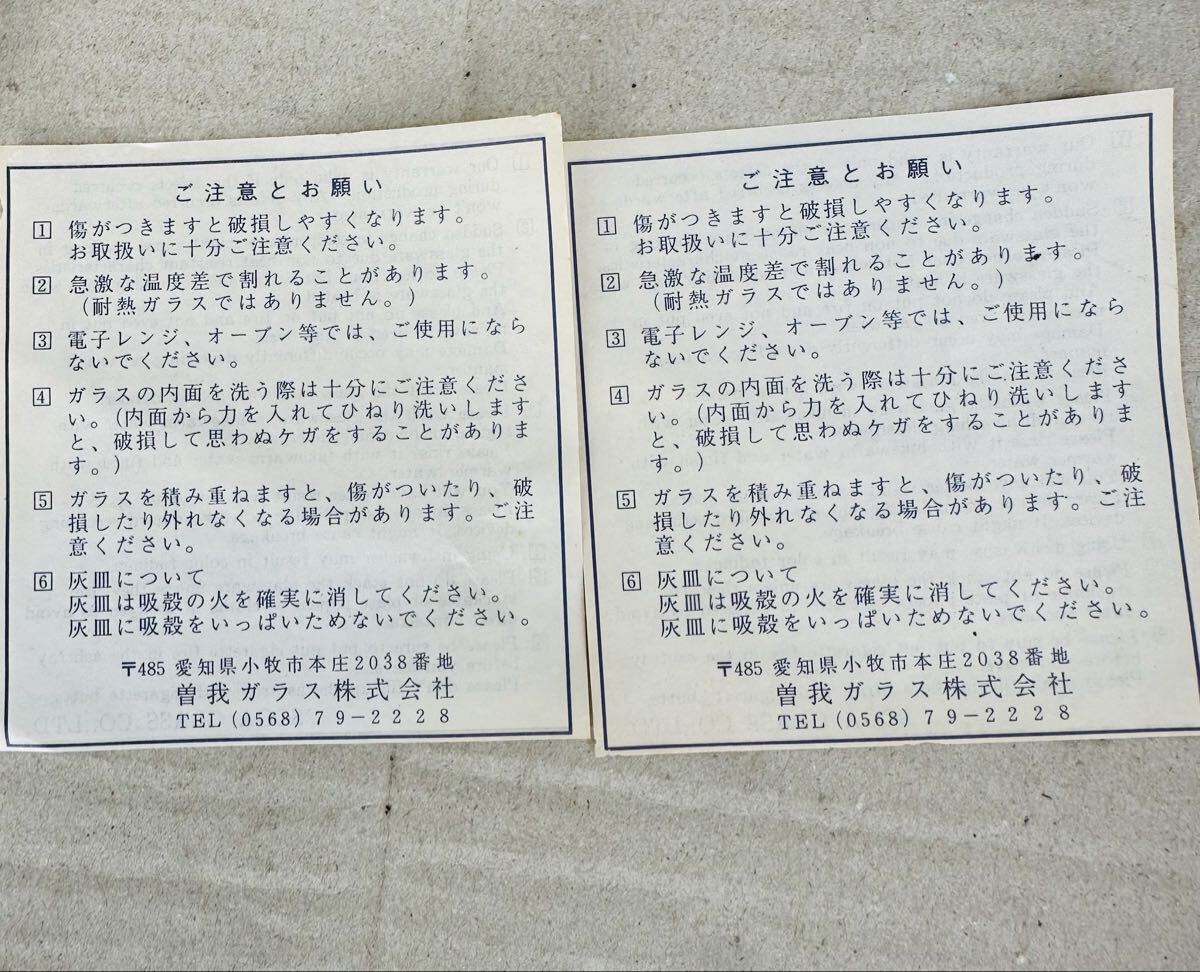 ご注意とお願い
1 傷がつきますと破損しやすくなります。
お取扱いに十分ご注意ください。
2 急激な温度差で割れることがあります。
(耐熱ガラスではありません。)
3 電子レンジ、オーブン等では、ご使用になら
ないでください。
4 ガラスの内面を洗う際は十分にご注意くださ
い。(内面から力を入れてひねり洗いします
と、破損して思わぬケガをすることがありま
す。)
5 ガラスを積み重ねますと、傷がついたり、破
損したり外れなくなる場合があります。ご注
意ください。
6 灰皿について
灰皿は吸殻の火を確実に消してください。
灰皿に吸殻をいっぱいためないでください。
〒485 愛知県小牧市本庄2038番地
曽我ガラス株式会社
TEL(0568)79-2228
ご注意とお願い
1 傷がつきますと破損しやすくなります。
お取扱いに十分ご注意ください。
2 急激な温度差で割れることがあります。
(耐熱ガラスではありません。)
3 電子レンジ、オーブン等では、ご使用になら
ないでください。
4 ガラスの内面を洗う際は十分にご注意くださ
い。(内面から力を入れてひねり洗いします
と、破損して思わぬケガをすることがありま
す。)
5 ガラスを積み重ねますと、傷がついたり、破
損したり外れなくなる場合があります。ご注
意ください。
6 灰皿について
灰皿は吸殻の火を確実に消してください。
灰皿に吸殻をいっぱいためないでください。
〒485 愛知県小牧市本庄2038番地
曽我ガラス株式会社
TEL(0568)79-2228